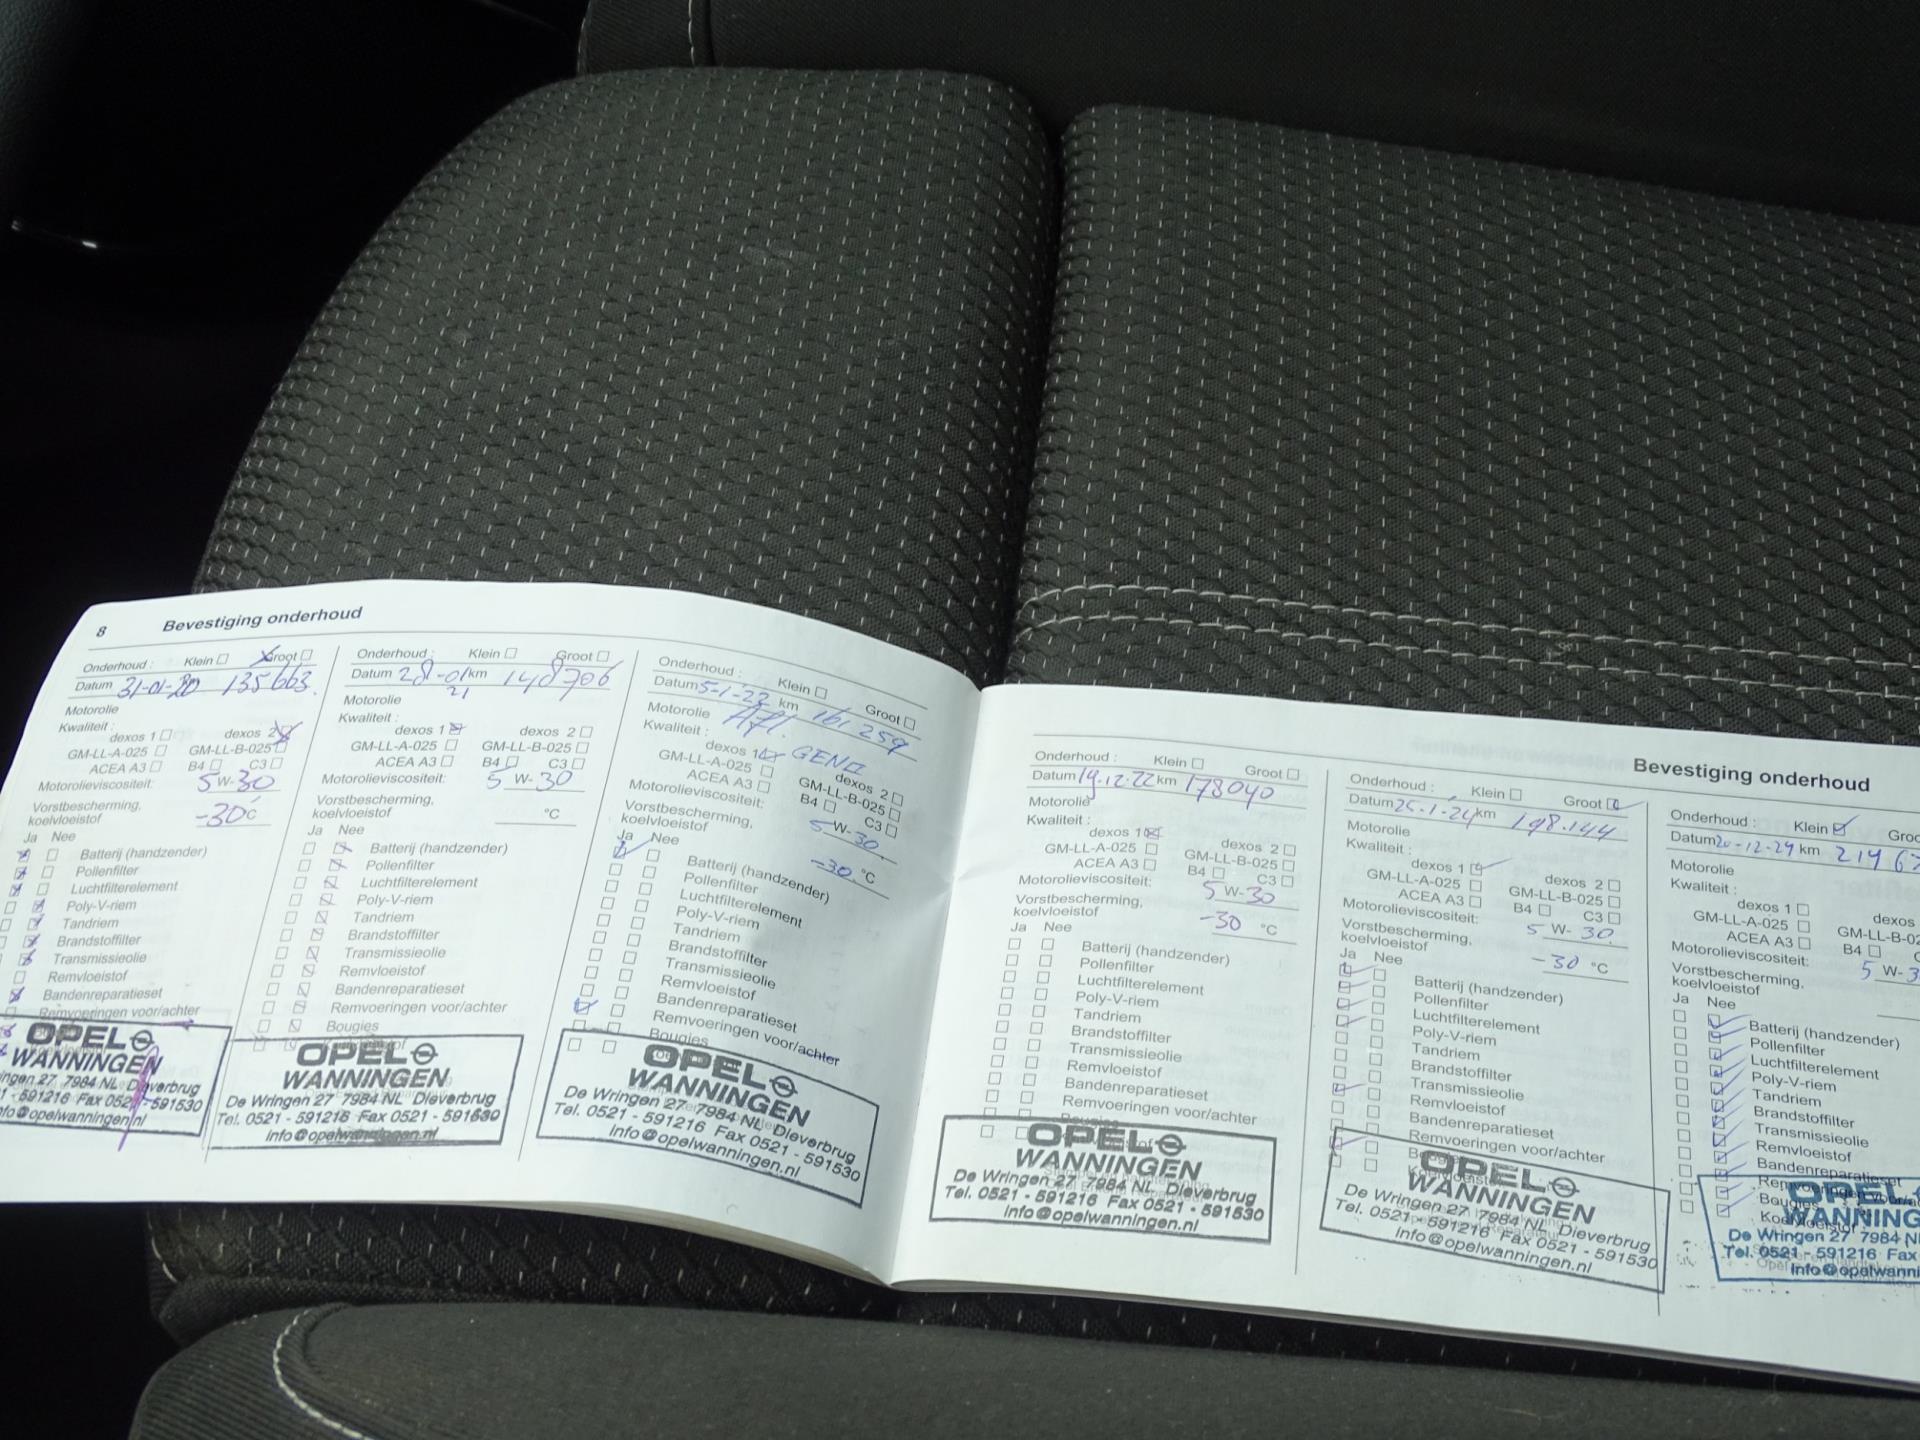 8
Bevestiging onderhoud
Onderhoud : Klein Groot
Datum 31-01-20 135663
Motorolie
Kwaliteit :
dexos 1 dexos 2
GM-LL-A-025 GM-LL-B-025
ACEA A3 B4 C3
Motorolieviscositeit: 5 W- 30
Vorstbescherming,
koelvloeistof -30 °C
Ja Nee
Batterij (handzender)
Pollenfilter
Luchtfilterelement
Poly-V-riem
Tandriem
Brandstoffilter
Transmissieolie
Remvloeistof
Bandenreparatieset
Remvoeringen voor/achter
OPEL
WANNINGEN
ingen 27 7984 NL Dieverbrug
1 - 591216 Fax 0521 - 591530
nfo@opelwanningen.nl
Onderhoud : Klein Groot
Datum 28-01 km 148706
21
Motorolie
Kwaliteit :
dexos 1 dexos 2
GM-LL-A-025 GM-LL-B-025
ACEA A3 B4 C3
Motorolieviscositeit: 5 W- 30
Vorstbescherming,
koelvloeistof °C
Ja Nee
Batterij (handzender)
Pollenfilter
Luchtfilterelement
Poly-V-riem
Tandriem
Brandstoffilter
Transmissieolie
Remvloeistof
Bandenreparatieset
Remvoeringen voor/achter
Bougies
OPEL
WANNINGEN
De Wringen 27 7984 NL Dieverbrug
Tel. 0521 - 591216 Fax 0521 - 591530
info@opelwanningen.nl
Onderhoud : Klein Groot
Datum 5-1-22 km 161259
Motorolie Afl.
Kwaliteit :
dexos 1 dexos 2
GM-LL-A-025 GM-LL-B-025
ACEA A3 B4 C3
Motorolieviscositeit: 5 W- 30
Vorstbescherming,
koelvloeistof -30 °C
Ja Nee
Batterij (handzender)
Pollenfilter
Luchtfilterelement
Poly-V-riem
Tandriem
Brandstoffilter
Transmissieolie
Remvloeistof
Bandenreparatieset
Remvoeringen voor/achter
Bougies
OPEL
WANNINGEN
De Wringen 27 7984 NL Dieverbrug
Tel. 0521 - 591216 Fax 0521 - 591530
info@opelwanningen.nl
Bevestiging onderhoud
Onderhoud : Klein Groot
Datum 19.12.22 km 178040
Motorolie
Kwaliteit :
dexos 1 dexos 2
GM-LL-A-025 GM-LL-B-025
ACEA A3 B4 C3
Motorolieviscositeit: 5 W- 30
Vorstbescherming,
koelvloeistof -30 °C
Ja Nee
Batterij (handzender)
Pollenfilter
Luchtfilterelement
Poly-V-riem
Tandriem
Brandstoffilter
Transmissieolie
Remvloeistof
Bandenreparatieset
Remvoeringen voor/achter
Bougies
OPEL
WANNINGEN
De Wringen 27 7984 NL Dieverbrug
Tel. 0521 - 591216 Fax 0521 - 591530
info@opelwanningen.nl
Onderhoud : Klein Groot
Datum 25-1-24 km 198.144
Motorolie
Kwaliteit :
dexos 1 dexos 2
GM-LL-A-025 GM-LL-B-025
ACEA A3 B4 C3
Motorolieviscositeit: 5 W- 30
Vorstbescherming,
koelvloeistof -30 °C
Ja Nee
Batterij (handzender)
Pollenfilter
Luchtfilterelement
Poly-V-riem
Tandriem
Brandstoffilter
Transmissieolie
Remvloeistof
Bandenreparatieset
Remvoeringen voor/achter
Bougies
Koelvloeistof
OPEL
WANNINGEN
De Wringen 27 7984 NL Dieverbrug
Tel. 0521 - 591216 Fax 0521 - 591530
info@opelwanningen.nl
Onderhoud : Klein Groo
Datum 20-12-24 km 21967
Motorolie
Kwaliteit :
dexos 1 dexos
GM-LL-A-025 GM-LL-B-02
ACEA A3 B4 C
Motorolieviscositeit: 5 W- 3
Vorstbescherming,
koelvloeistof
Ja Nee
Batterij (handzender)
Pollenfilter
Luchtfilterelement
Poly-V-riem
Tandriem
Brandstoffilter
Transmissieolie
Remvloeistof
Bandenreparatieset
Remvoeringen voor/a
Bougies
Koelvloeistof
OPEL
WANNING
De Wringen 27 7984 NL
Tel. 0521 - 591216 Fax
info@opelwanni